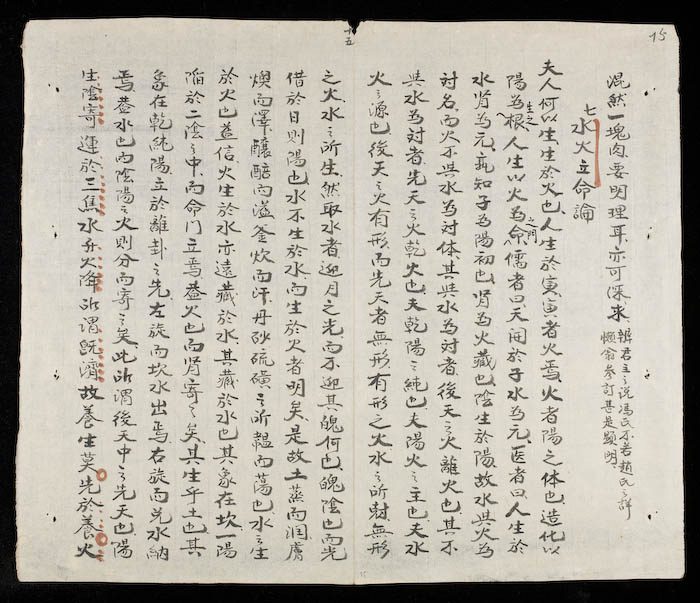 15
十五
混然一塊肉要明理耳亦可深求
辨君主之說馮氏不若趙氏之詳
懶翁參訂甚是顯明
七水火立命論
夫人何以生生於火也人生於寅寅者火焉火者陽之体也造化以
陽為生之根人生以火為命之門儒者曰天開於子水為元医者曰人生於
水肾為元孰知子為陽初也肾為火藏也陰生於陽故水與火為
対名而火不與水為対体其與水為対者後天之火離火也其不
與水為対者先天之火乾火也夫乾陽之純也夫陽火之主也夫水
火之源也後天之火有形而先天者無形有形之火水之所尅無形
之火水之所生然取水者迎月之光而不迎其魄何也魄陰也而光
借於日則陽也水不生於水而生於火者明矣是故土蒸而潤膚
燠而澤釀醅而溢釜炊而汗丹砂硫磺之所韞而蕩也水之生
於火也益信火生於水亦遠藏於水其藏於水也其象在坎一陽
陷於二陰之中而命门立焉蓋火也而肾寄之矣其生乎土也其
象在乾純陽立於離卦之先左旋而坎水出焉右旋而兑水納
焉蓋水也而陰陽之火則分而寄之矣此所謂後天中之先天也陽
生陰寄運於三焦水升火降所謂既濟故養生莫先於養火